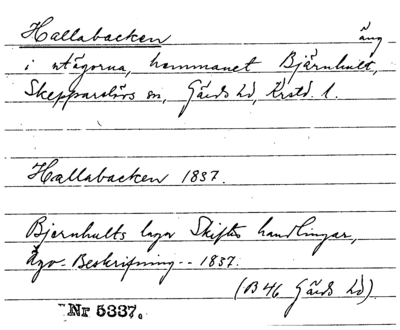 Hallabacken äng
i utägorna, hemmanet Bjärnhult,
Skepparslövs sn, Gärds hd, Krstd. l.
Hallabacken 1837.
Bjernhults laga Skiftes handlingar,
Ägo-Beskrifning-- 1837.
(B46 Gärds hd).
Nr 5337.